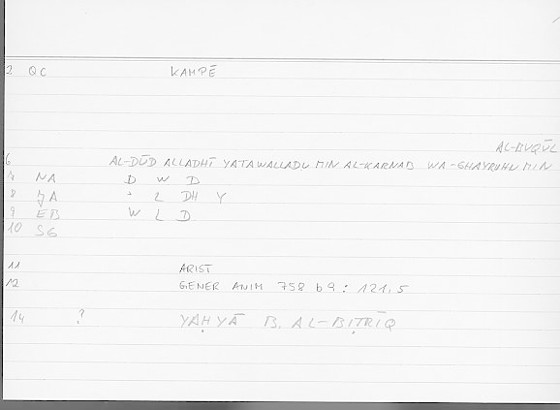 2 QC KAMPĒ
AL-BUQŪL
6 AL-DŪD ALLADHĪ YATAWALLADU MIN AL-KARNAB WA-GHAYRUHU MIN
7 NA D W D
8 L DH Y
9 EB W L D
10 SG
11 ARIST
12 GENER ANIM 758 b 9 : 121.5
14 ? YAḤYĀ B. AL-BIṬRĪQ